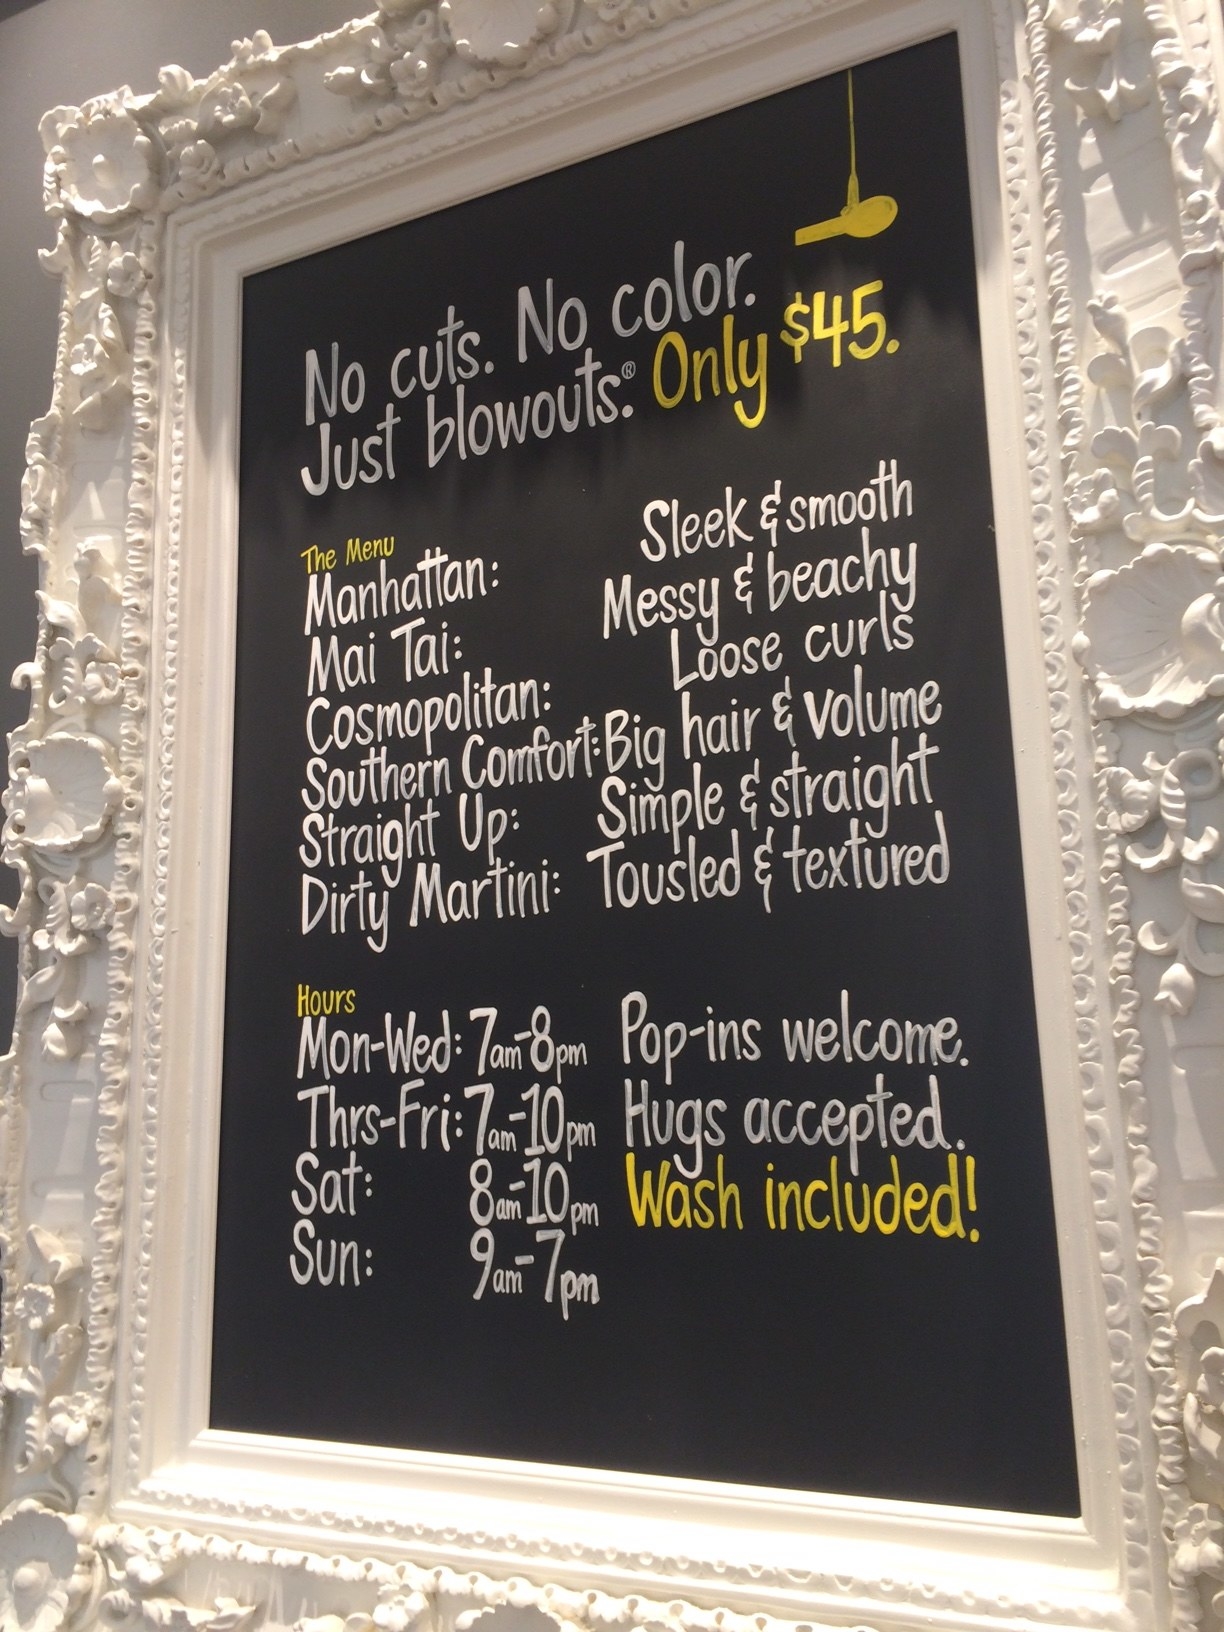 No cuts. No color.
Just blowouts.® Only $45.
The Menu
Manhattan: Sleek & smooth
Mai Tai: Messy & beachy
Cosmopolitan: Loose curls
Southern Comfort: Big hair & volume
Straight Up: Simple & straight
Dirty Martini: Tousled & textured
Hours
Mon-Wed: 7am-8pm
Thrs-Fri: 7am-10pm
Sat: 8am-10pm
Sun: 9am-7pm
Pop-ins welcome.
Hugs accepted.
Wash included!